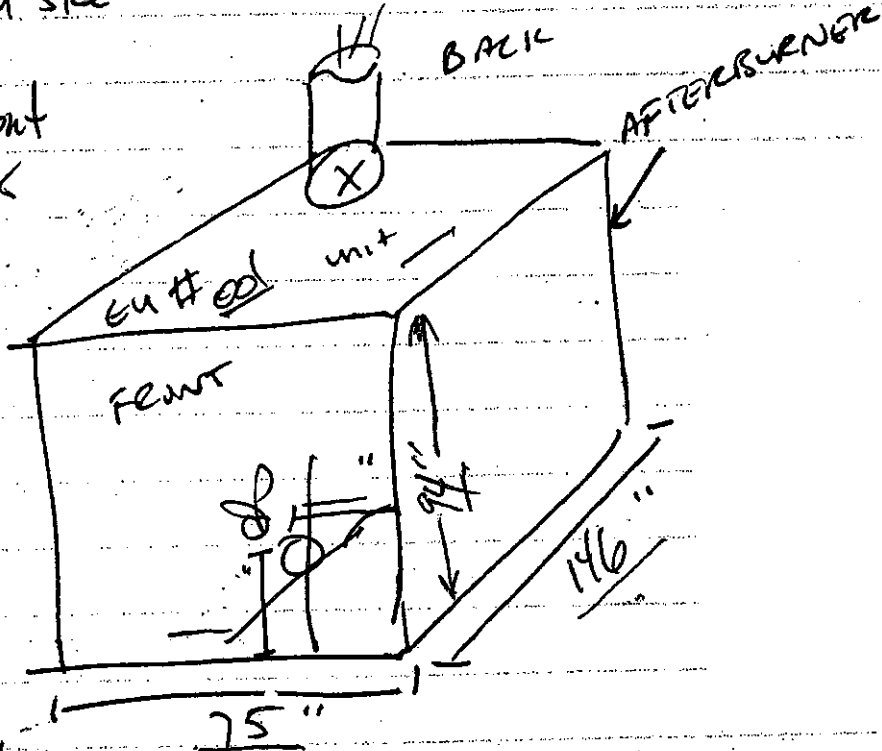 BACK
AFTERBURNER
X
EU # 001 unit
FRONT
"
94"
146"
75"